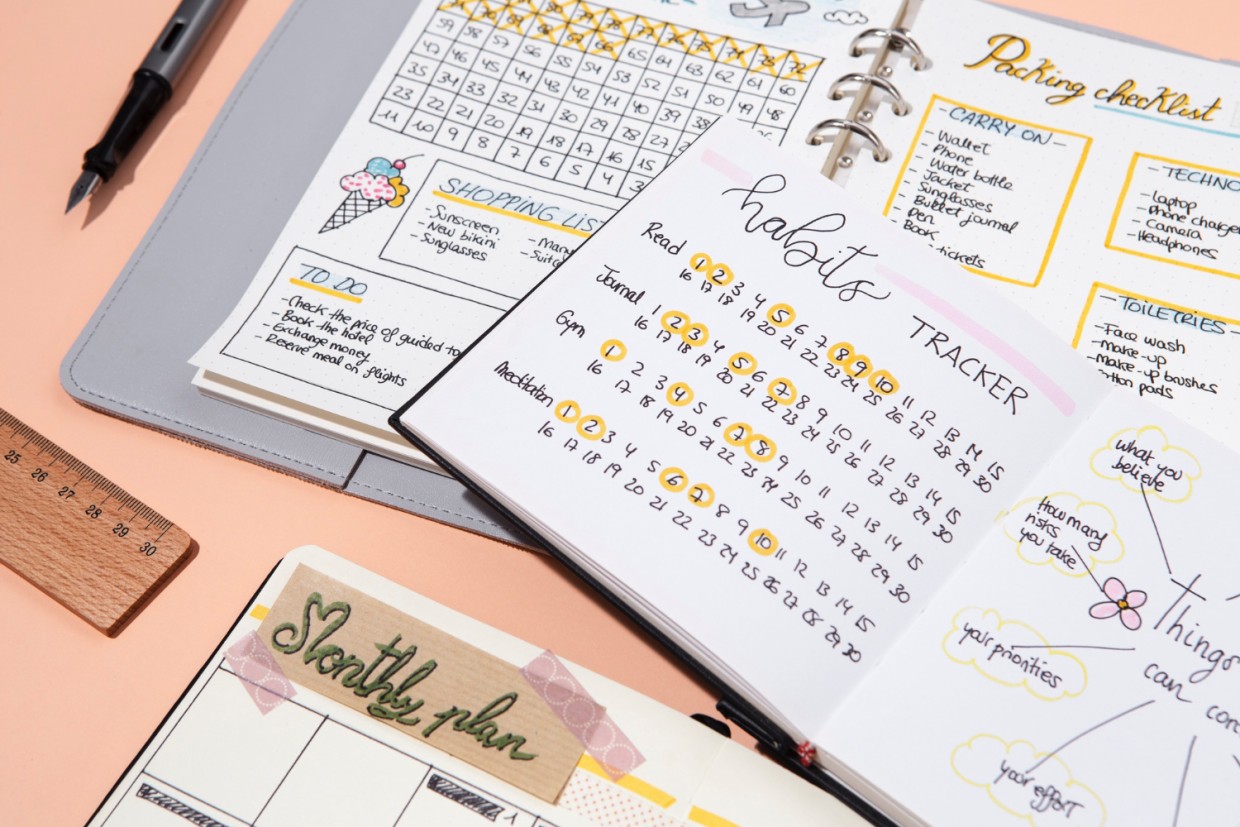 65 64 63 62 61 60
59 58 57 56 55 54 53 52 51 50 49 48
47 46 45 44 43 42 41 40 39 38
35 34 33 32 31 30 29 28 27
23 22 21 20 19 18 17 16 15
11 10 9 8 7 6 5 4 3
SHOPPING LIST
- Sunscreen
- New bikini
- Sunglasses
TO DO
- Check the price of guided to
- Book the hotel
- Exchange money
- Reserve meal on flights
Packing checklist
- CARRY ON -
- Wallet
- Phone
- Water bottle
- Jacket
- Sunglasses
- Bullet journal
- Pen
- Book
tickets
- TECHNO
- Laptop
- Phone charge
- Camera
- Headphones
- TOILETRIES -
- Face wash
- Make-up
- Make-up brushes
pads
habits
TRACKER
Read 1 2 3 4 5 6 7 8 9 10 11 12 13 14 15
16 17 18 19 20 21 22 23 24 25 26 27 28 29 30
Journal 1 2 3 4 5 6 7 8 9 10 11 12 13 14 15
16 17 18 19 20 21 22 23 24 25 26 27 28 29 30
Gym 1 2 3 4 5 6 7 8 9 10 11 12 13 14 15
16 17 18 19 20 21 22 23 24 25 26 27 28 29 30
Meditation 1 2 3 4 5 6 7 8 9 10 11 12 13 14 15
16 17 18 19 20 21 22 23 24 25 26 27 28 29 30
what you
believe
How many
risks
you take
your priorities
your effort
Things
can
25 26 27 28 29 30
Monthly plan
1